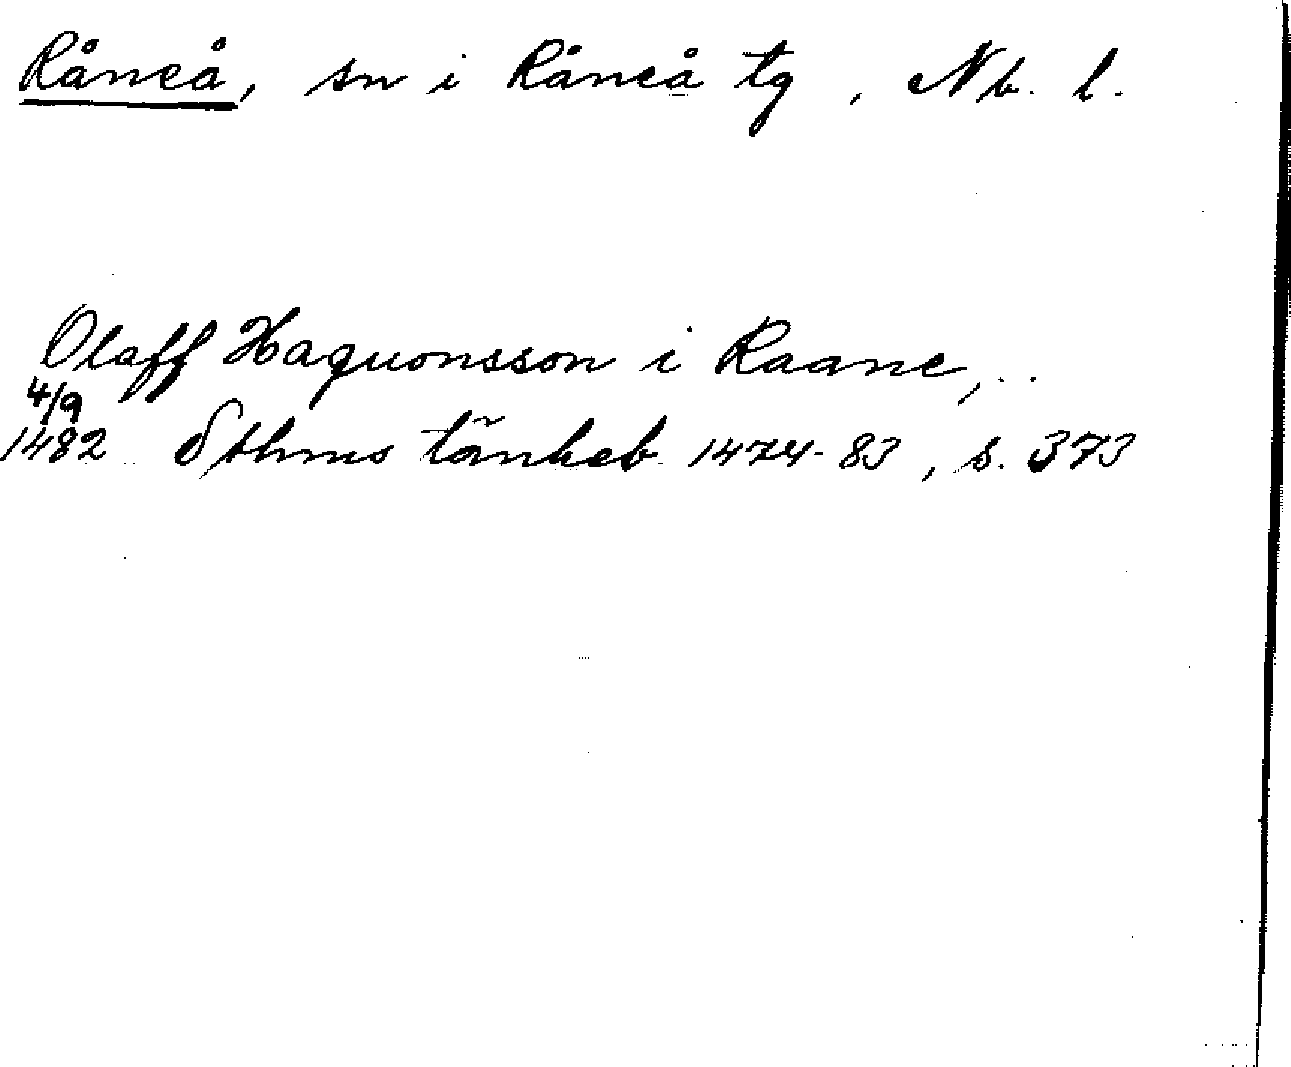 Råneå, sn i Råneå tg, Nb. l.
Olaff Haquonsson i Raane, ..
4/9
1482 Sthms tänkeb 1474-83, s. 373